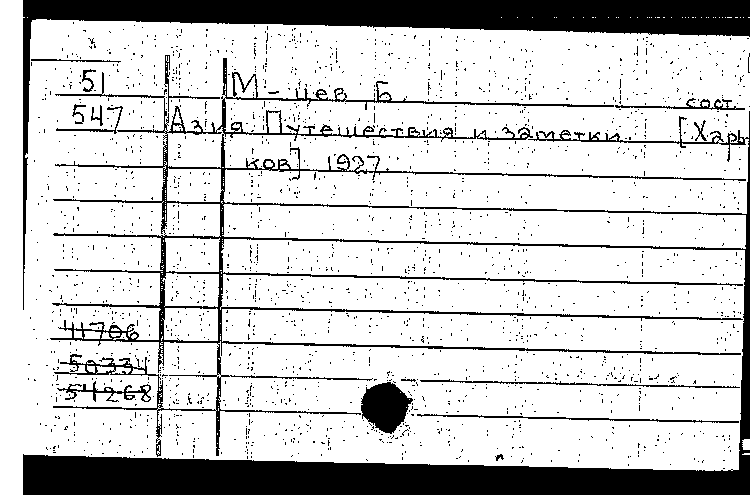 51 М-цев, Б. сост.
547 Азия. Путешествия и заметки. [Харь
ков], 1927.
41706
50334
54268